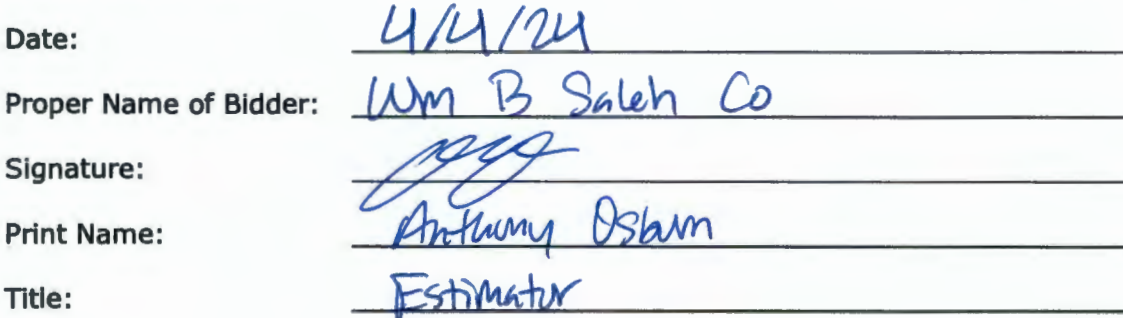 Date: 4/4/24
Proper Name of Bidder: Wm B Saleh Co
Signature:
Print Name: Anthony Osburn
Title: Estimator